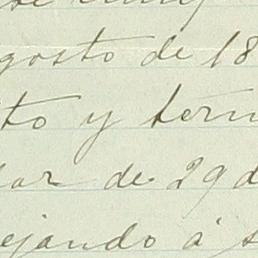 gosto de 18
to y tern
lar de 29 d
ejando á s